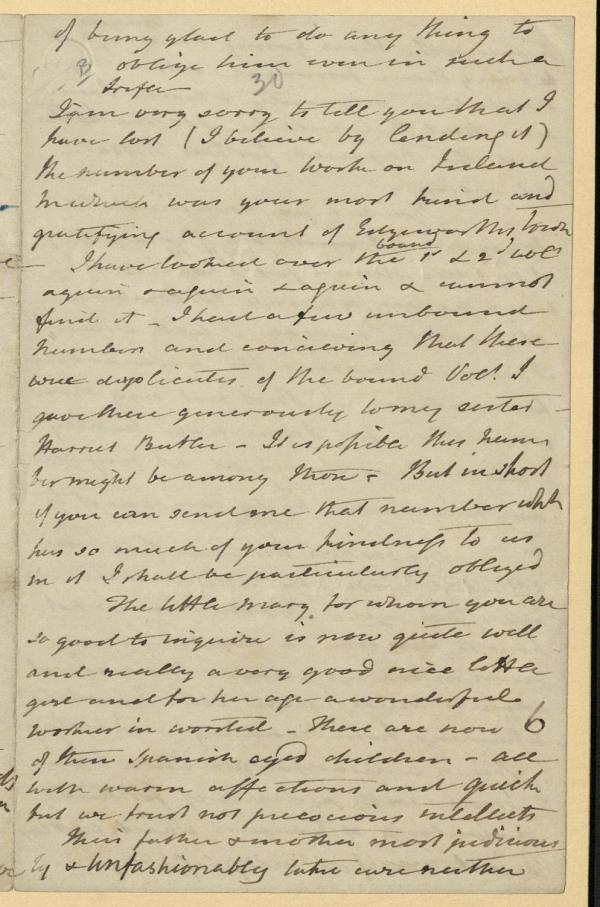 of being glad to do any thing to
B oblige him even in such a
trifle 30
I am very sorry to tell you that I
have lost (I believe by lending it)
the number of your work on Ireland
in which was your most kind and
gratifying account of Edgeworths town
I have looked over the bound 1st & 2d vols
again & again & again & cannot
find it - I had a few unbound
numbers and conceiving that these
were duplicates of the bound Vols. I
gave these generously to my sister
Harriet Butler - It is possible this num
ber might be among them - But in short
if you can send me that number which
has so much of your kindness to us
in it I shall be particularly obliged
The little Mary for whom you are
so good to inquire is now quite well
and really a very good nice little
girl and for her age a wonderful
worker in worsted - There are now 6
of these Spanish eyed children - all
with warm affections and quick
but we trust not precocious intellects
Their father & mother most judicious
ly & unfashionably take care neither